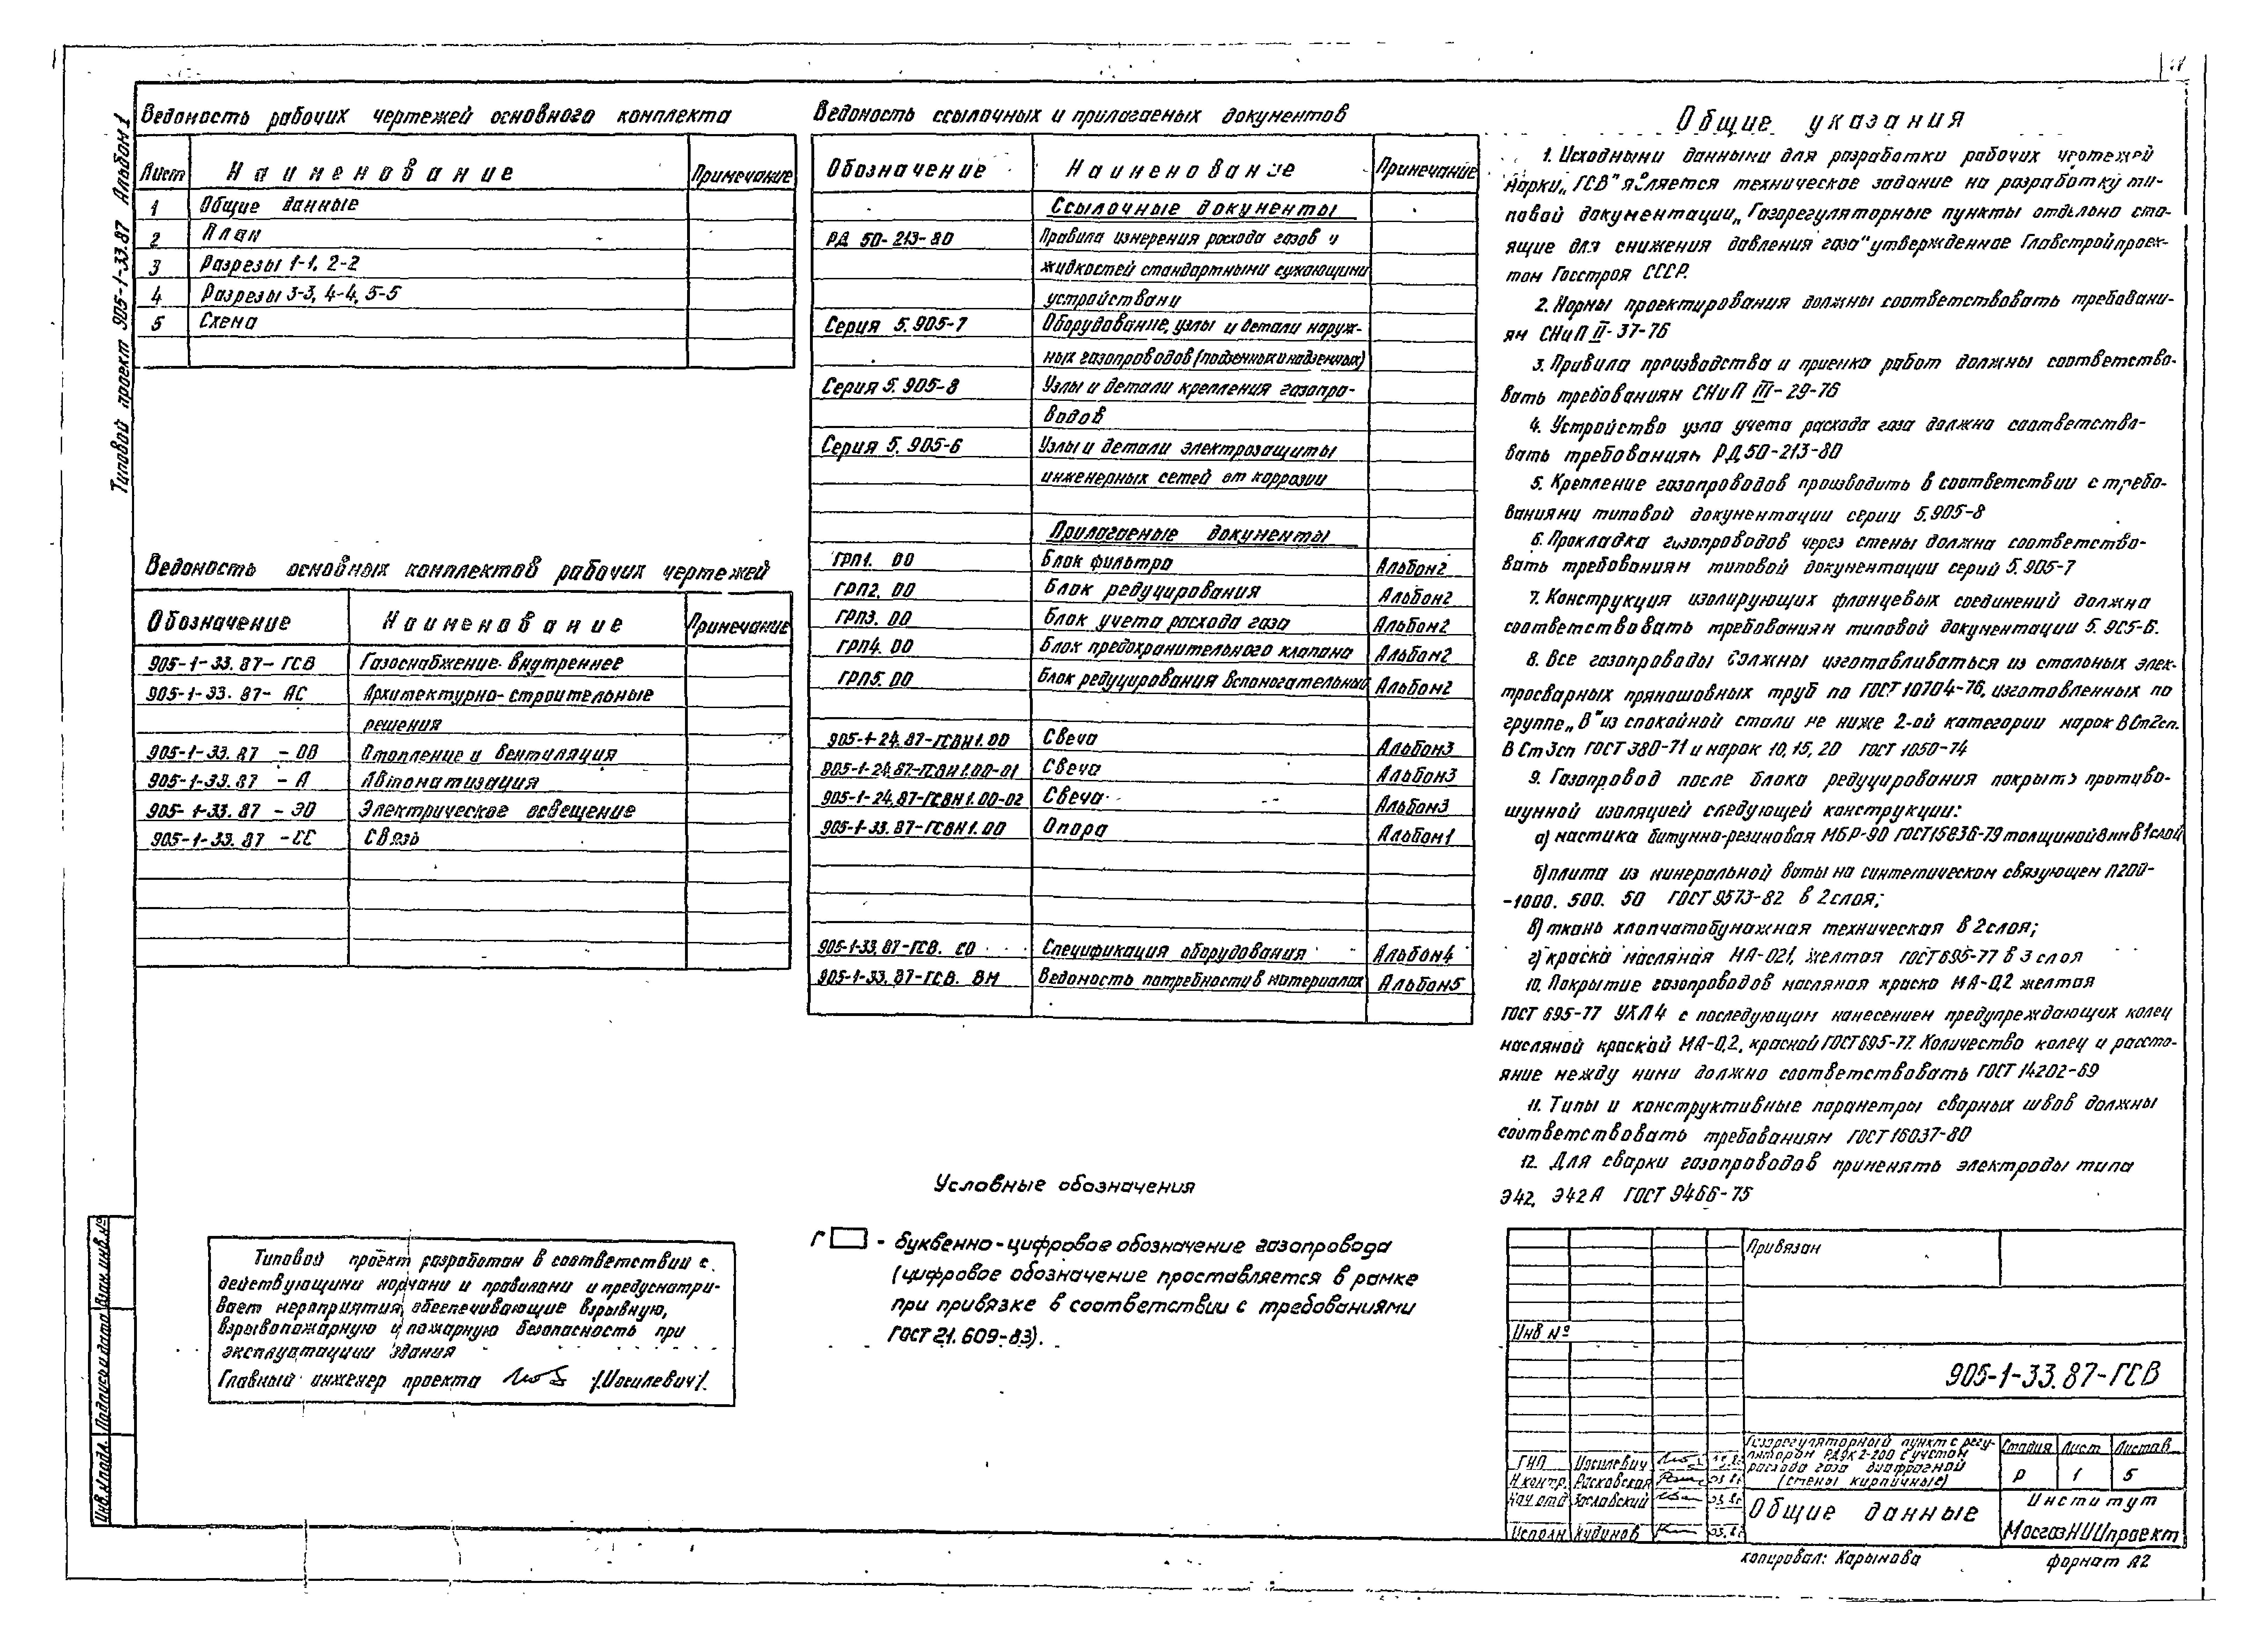 Типовой проект 905-1-33.87 Альбом 1
Ведомость рабочих чертежей основного комплекта
Лист Наименование Примечание
1 Общие данные
2 План
3 Разрезы 1-1, 2-2
4 Разрезы 3-3, 4-4, 5-5
5 Схема
Ведомость основных комплектов рабочих чертежей
Обозначение Наименование Примечание
905-1-33.87-ГСВ Газоснабжение внутреннее
905-1-33.87-АС Архитектурно-строительные
решения
905-1-33.87-ОВ Отопление и вентиляция
905-1-33.87-А Автоматизация
905-1-33.87-ЭО Электрическое освещение
905-1-33.87-СС Связь
Типовой проект разработан в соответствии с
действующими нормами и правилами и предусматри-
вает мероприятия, обеспечивающие взрывную,
взрывопожарную и пожарную безопасность при
эксплуатации здания
Главный инженер проекта /Иосилевич/.
Ведомость ссылочных и прилагаемых документов
Обозначение Наименование Примечание
Ссылочные документы
РД 50-213-80 Правила измерения расхода газов и
жидкостей стандартными сужающими
устройствами
Серия 5.905-7 Оборудование, узлы и детали наруж-
ных газопроводов (подземных и надземных)
Серия 5.905-8 Узлы и детали крепления газопро-
водов
Серия 5.905-6 Узлы и детали электрозащиты
инженерных сетей от коррозии
Прилагаемые документы
ГРП1.00 Блок фильтра Альбом2
ГРП2.00 Блок редуцирования Альбом2
ГРП3.00 Блок учета расхода газа Альбом2
ГРП4.00 Блок предохранительного клапана Альбом2
ГРП5.00 Блок редуцирования вспомогательный Альбом2
905-1-24.87-ГСВН1.00 Свеча Альбом3
905-1-24.87-ГСВН1.00-01 Свеча Альбом3
905-1-24.87-ГСВН1.00-02 Свеча Альбом3
905-1-33.87-ГСВН1.00 Опора Альбом1
905-1-33.87-ГСВ.СО Спецификация оборудования Альбом4
905-1-33.87-ГСВ.ВМ Ведомость потребности в материалах Альбом5
Условные обозначения
Г - буквенно-цифровое обозначение газопровода
(цифровое обозначение проставляется в рамке
при привязке в соответствии с требованиями
ГОСТ 21.609-83).
Общие указания
1. Исходными данными для разработки рабочих чертежей
марки „ГСВ" является техническое задание на разработку ти-
повой документации „Газорегуляторные пункты отдельно сто-
ящие для снижения давления газа" утвержденное Главстройпроек-
том Госстроя СССР.
2. Нормы проектирования должны соответствовать требовани-
ям СНиП II-37-76
3. Правила производства и приемка работ должны соответство-
вать требованиям СНиП III-29-76
4. Устройство узла учета расхода газа должно соответство-
вать требованиям РД 50-213-80
5. Крепление газопроводов производить в соответствии с требо-
ваниями типовой документации серии 5.905-8
6. Прокладка газопроводов через стены должна соответство-
вать требованиям типовой документации серий 5.905-7
7. Конструкция изолирующих фланцевых соединений должна
соответствовать требованиям типовой документации 5.905-6.
8. Все газопроводы должны изготавливаться из стальных элек-
тросварных прямошовных труб по ГОСТ 10704-76, изготовленных по
группе „В" из спокойной стали не ниже 2-ой категории марок ВСт2сп.
ВСт3сп ГОСТ 380-71 и марок 10, 15, 20 ГОСТ 1050-74
9. Газопровод после блока редуцирования покрыть противо-
шумной изоляцией следующей конструкции:
а) мастика битумно-резиновая МБР-90 ГОСТ 15836-79 толщиной 8мм в 1слой
б) плита из минеральной ваты на синтетическом связующем П200-
-1000.500.50 ГОСТ 9573-82 в 2 слоя;
в) ткань хлопчатобумажная техническая в 2 слоя;
г) краска масляная МА-021, желтая ГОСТ 695-77 в 3 слоя
10. Покрытие газопроводов масляная краска МА-0,2 желтая
ГОСТ 695-77 УХЛ4 с последующим нанесением предупреждающих колец
масляной краской МА-0,2, красной ГОСТ 695-77. Количество колец и рассто-
яние между ними должно соответствовать ГОСТ 14202-69
11. Типы и конструктивные параметры сварных швов должны
соответствовать требованиям ГОСТ 16037-80
12. Для сварки газопроводов применять электроды типа
Э42, Э42А ГОСТ 9466-75
Привязан
Инв №
905-1-33.87-ГСВ
Газорегуляторный пункт с регу-
лятором РДУК2-200 с учетом
расхода газа диафрагмой
(стены кирпичные)
Стадия Лист Листов
Р 1 5
ГИП Иосилевич
Н.контр. Расковская
Нач.отд Заславский
Исполн Кудинов
Общие данные
Институт
МосгазНИИпроект
копировал: Карымова формат А2
Инв.№подл. Подпись и дата Взам.инв.№